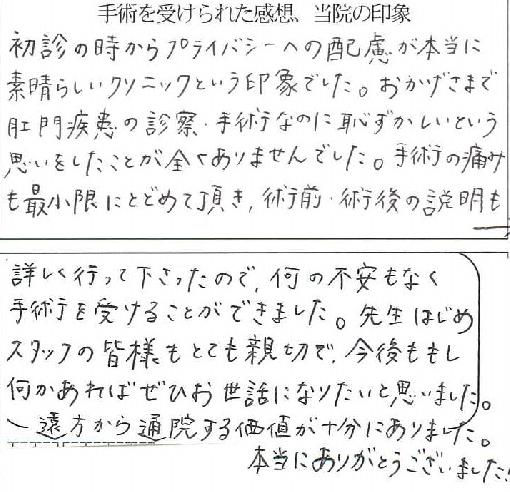 手術を受けられた感想、当院の印象
初診の時からプライバシーへの配慮が本当に
素晴らしいクリニックという印象でした。おかげさまで
肛門疾患の診察・手術なのに恥ずかしいという
思いをしたことが全くありませんでした。手術の痛み
も最小限にとどめて頂き、術前・術後の説明も
詳しく行って下さったので、何の不安もなく
手術を受けることができました。先生はじめ
スタッフの皆様もとても親切で、今後ももし
何かあればぜひお世話になりたいと思いました。
遠方から通院する価値が十分にありました。
本当にありがとうございました!